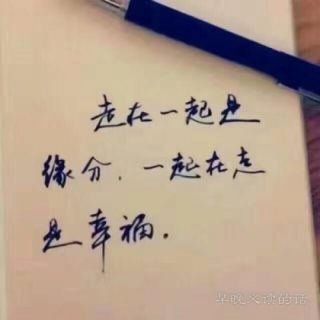 走在一起是
缘分，一起在走
是幸福。
早晚必读的话